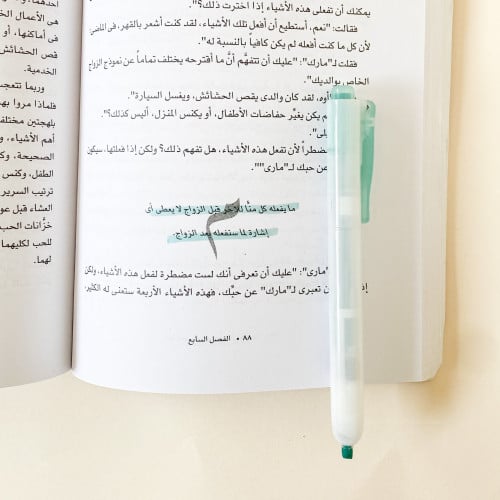 يمكنك أن تفعلى هذه الأشياء إذا اخترت ذلك؟".
فقالت: "نعم، أستطيع أن أفعل تلك الأشياء، لقد كنت أشعر بالقهر، فى الماضى
لأن كل ما كنت أفعله لم يكن كافياً بالنسبة له".
فقلت لـ"مارك": "عليك أن تتفهَّم أنَّ ما أقترحه يختلف تماماً عن نموذج الزواج
الخاص بوالديك".
أوه، لقد كان والدى يقص الحشائش، ويغسل السيارة".
لم يكن يغيِّر حفاضات الأطفال، أو يكنس المنزل، أليس كذلك؟".
مضطراً لأن تفعل هذه الأشياء، هل تفهم ذلك؟ ولكن إذا فعلتها، سيكون
عن حبك لـ"مارى"".
ما يفعله كل منَّا للآخر قبل الزواج لا يعطى أى
إشارة لما ستفعله بعد الزواج.
"مارى": "عليك أن تعرفى أنك لست مضطرة لفعل هذه الأشياء، ولكن
تعبرى لـ"مارك" عن حبك، فهذه الأشياء الأربعة ستعنى له الكثير،
٨٨ • الفصل السابع
هى الأعمال
فى أماكنها، أو
قص الحشائش
الخدمية.
وربما تتعجب
فلماذا مروا
بلهجتين مختلف
أهم الأشياء،
الصحيحة،
الطفل، وكنس
ترتيب السرير
العشاء قبل
خزَّانات الحب
للحب لكليهما
لهما.